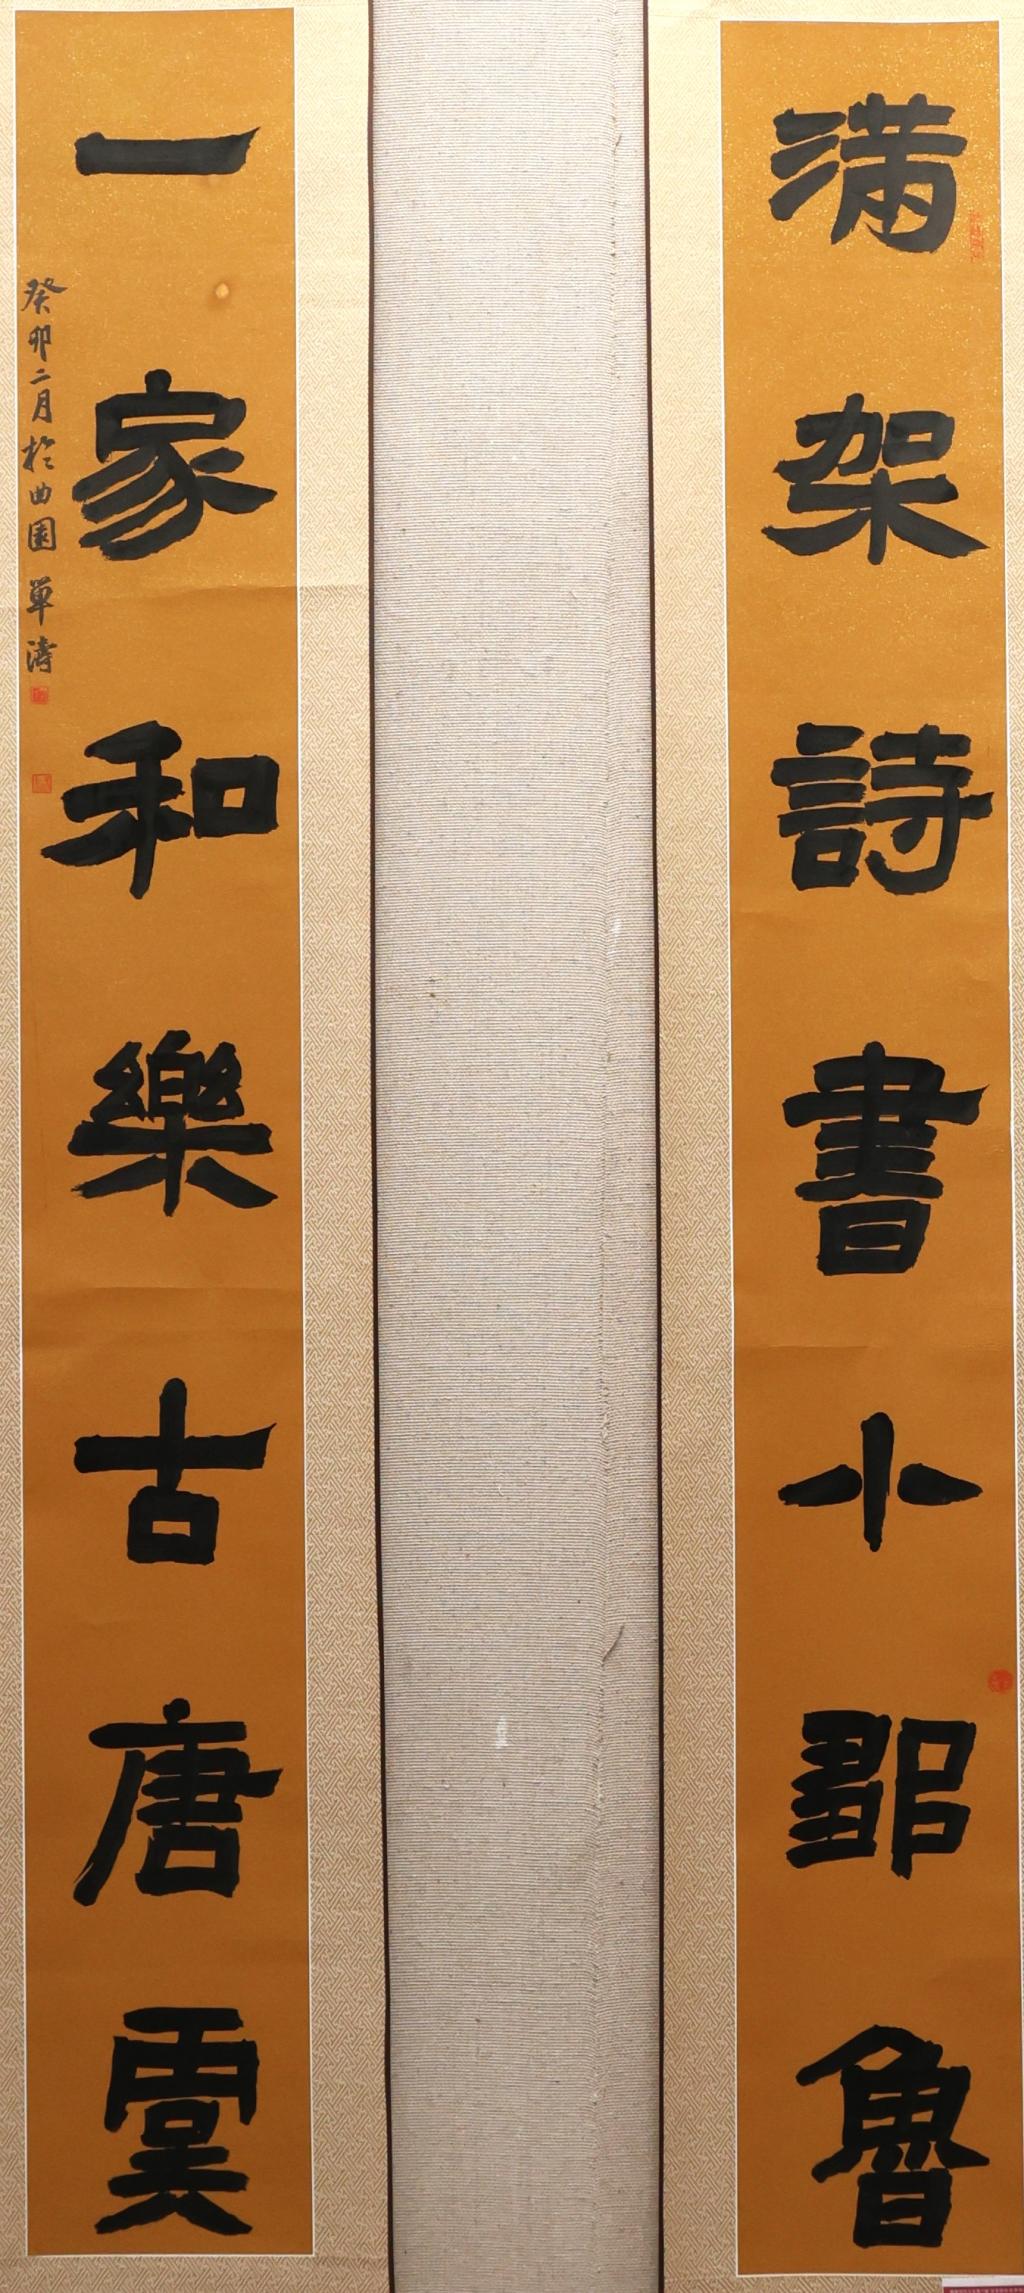 满架詩書小鄒魯
一家和樂古唐虞
癸卯二月於曲園 單濤